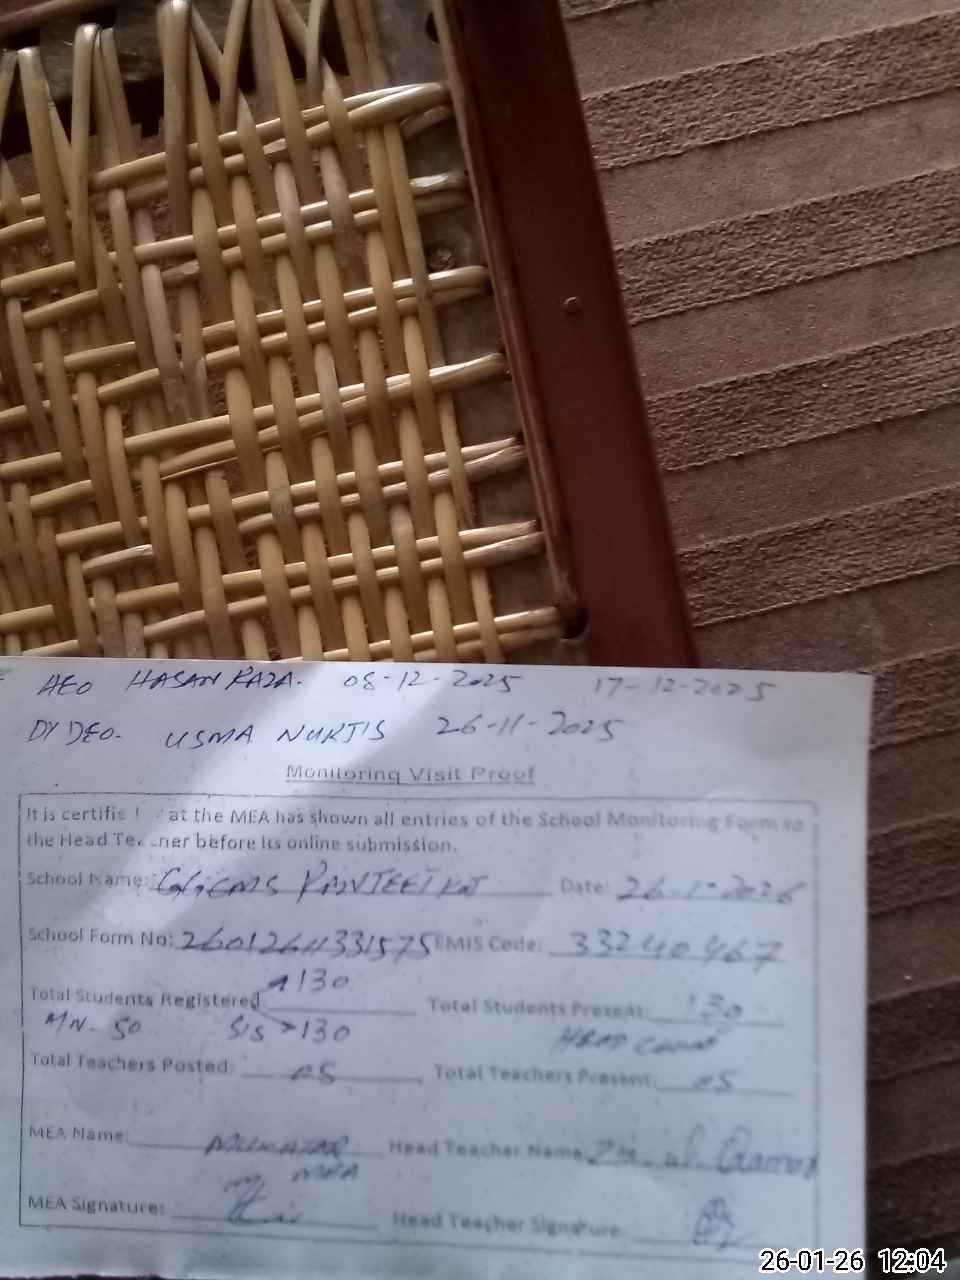 AEO HASAN RAZA. 08-12-2025 17-12-2025
DY DEO. USMA NURJIS 26-11-2025
Monitoring Visit Proof
It is certifie at the MEA has shown all entries of the School Monitoring Form to
the Head Te ner before its online submission.
School Name: Date: 26-1-2026
School Form No: EMIS Code: 33240467
130
Total Students Registered Total Students Present: 130
50 SIS 130 HEAD COUNT
Total Teachers Posted: 05 Total Teachers Present: 05
MEA Name: Head Teacher Name Qamar
MEA
MEA Signature: Head Teacher Signature:
26-01-26 12:04